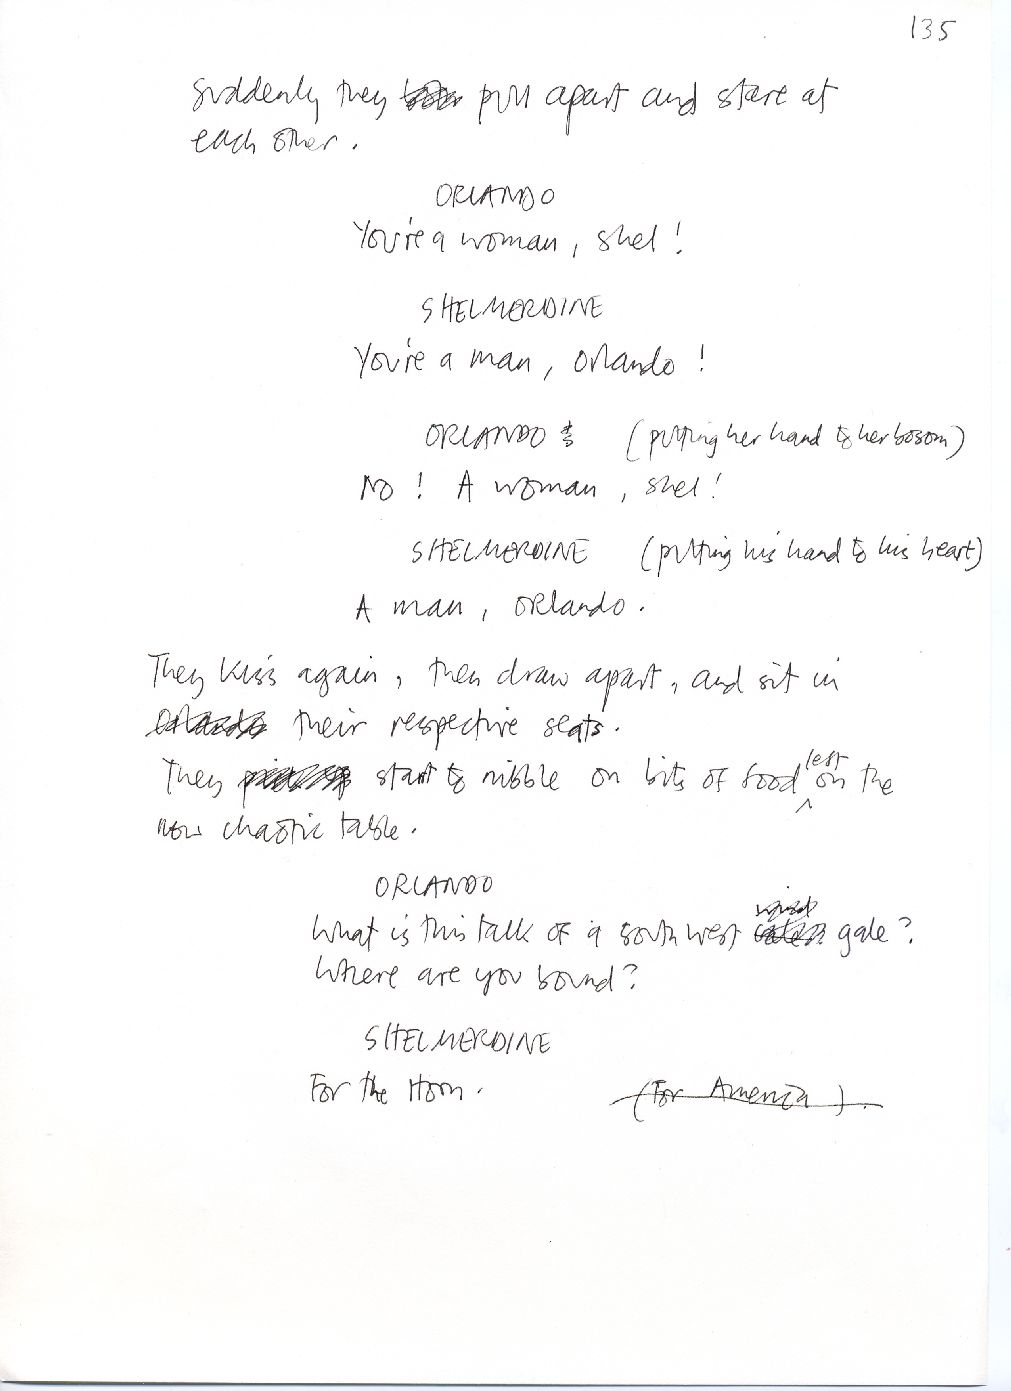 135
Suddenly they pull apart and stare at
each other.
ORLANDO
You're a woman, Shel!
SHELMERDINE
You're a man, Orlando!
ORLANDO (putting her hand to her bosom)
No! A woman, Shel!
SHELMERDINE (putting his hand to his heart)
A man, Orlando.
They kiss again, then draw apart, and sit in
their respective seats.
They start to nibble on bits of food left on the
now chaotic table.
ORLANDO
What is this talk of a south west gale?
Where are you bound?
SHELMERDINE
For the Horn. (For America).